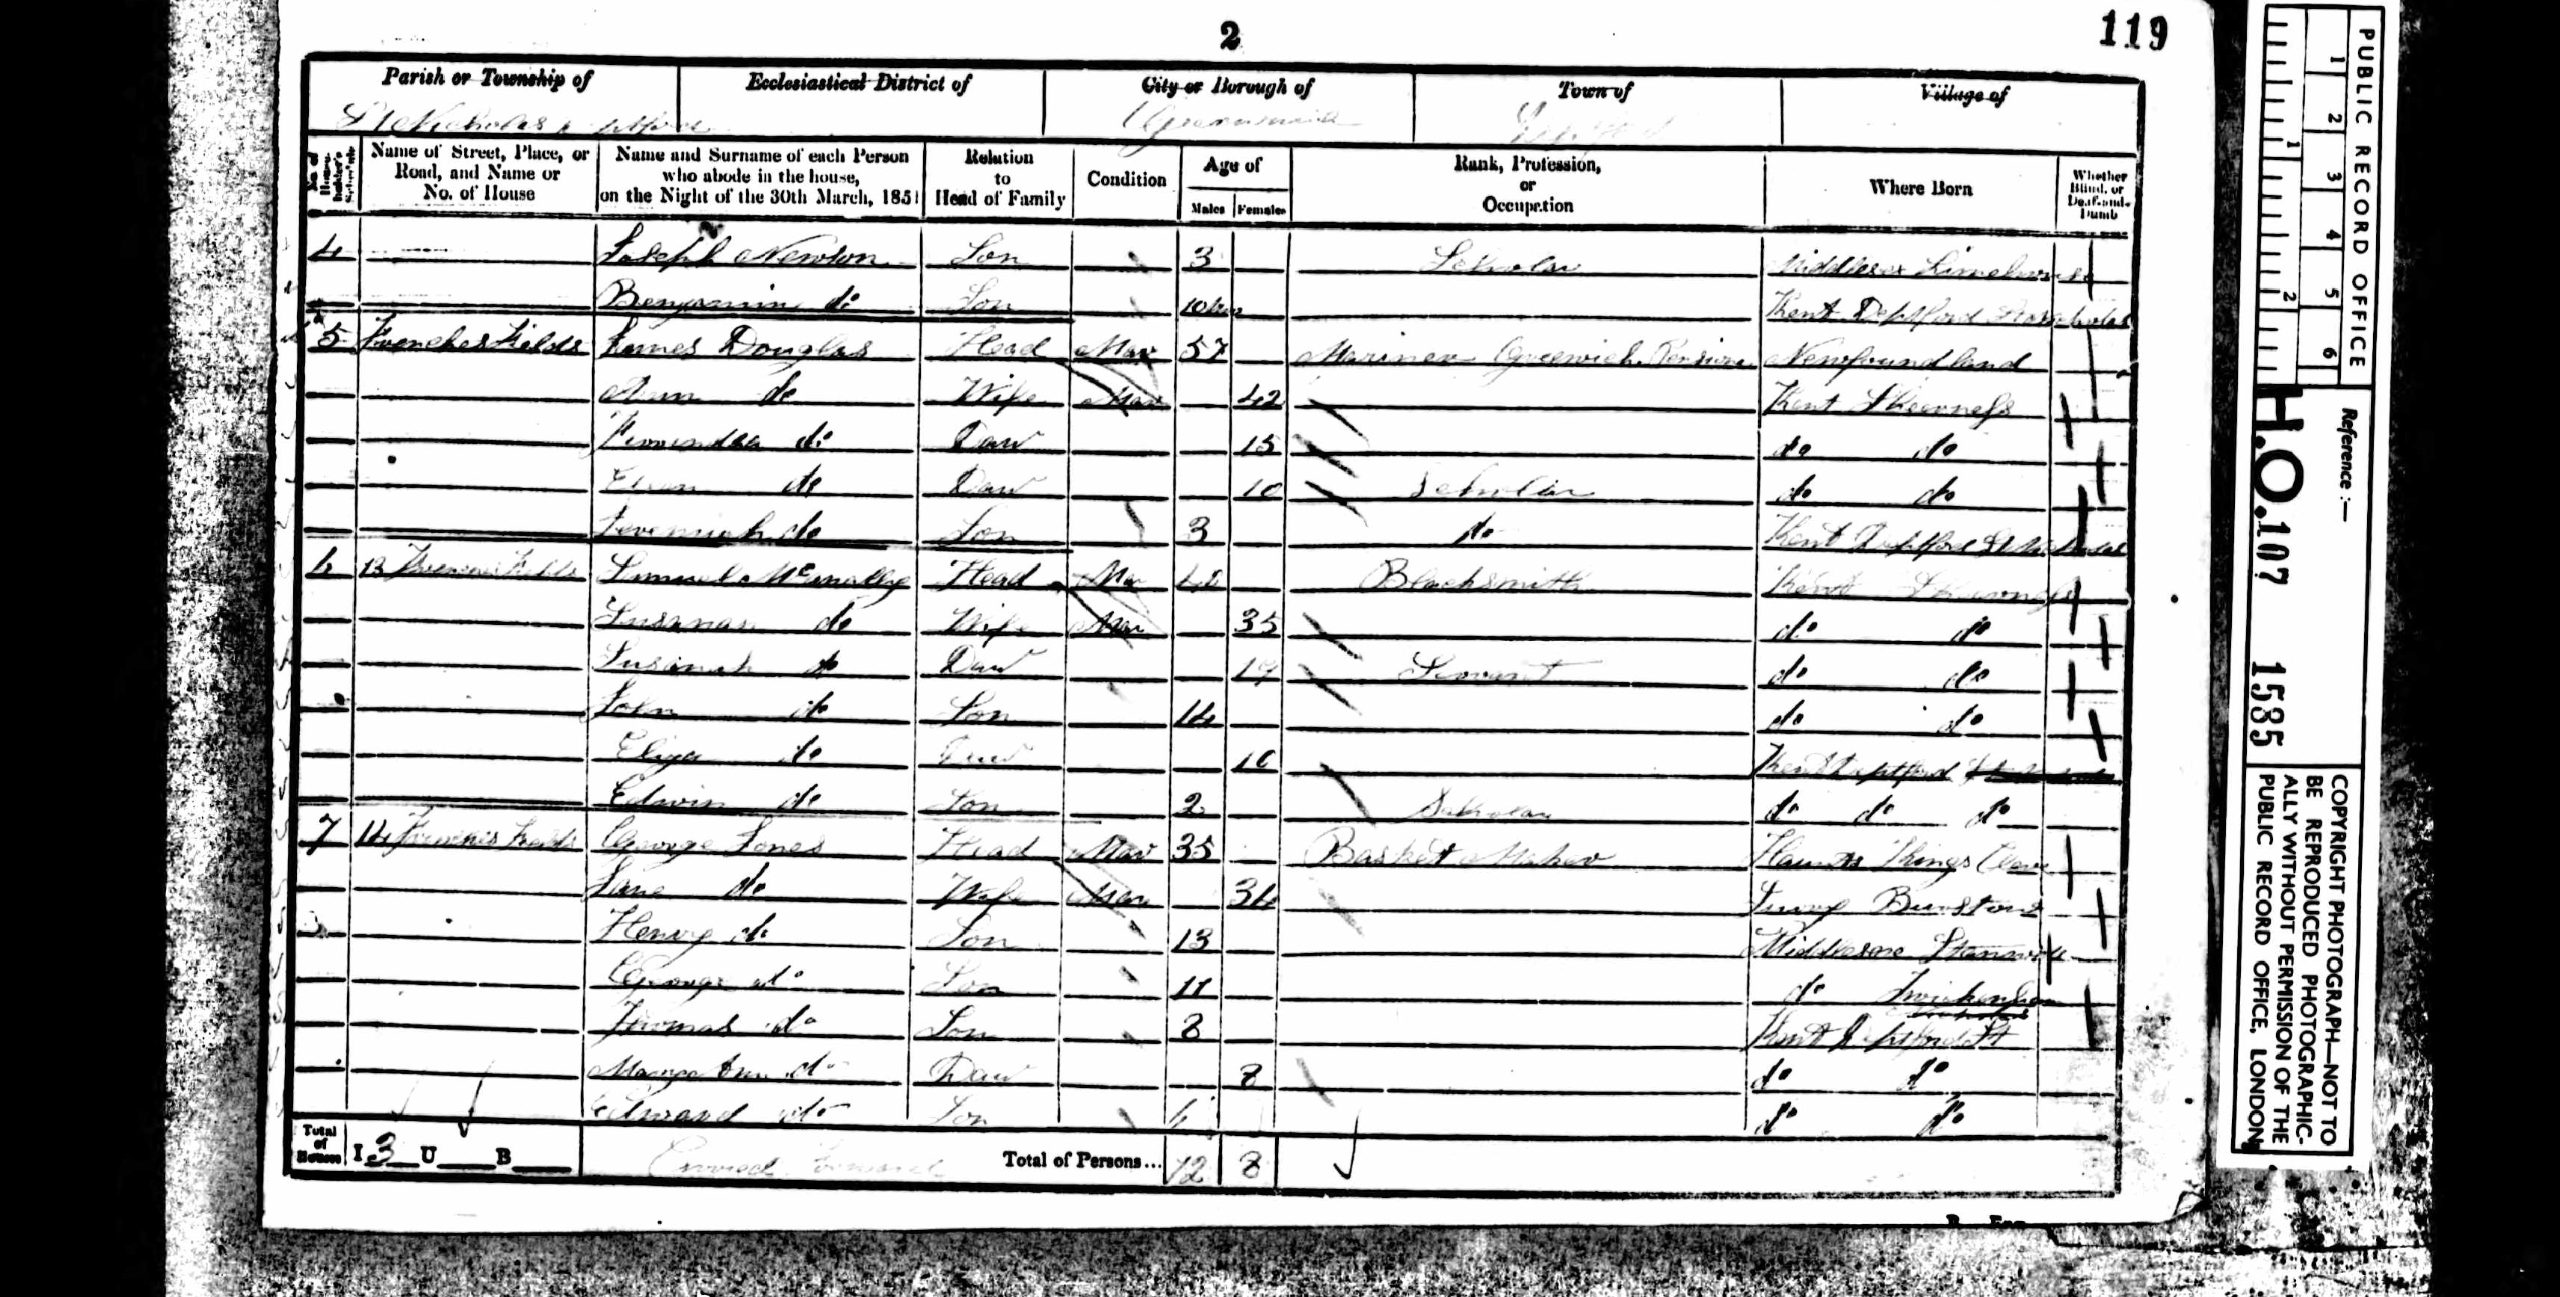 2
119
Parish or Township of
Ecclesiastical District of
City or Borough of
Town of
Village of
St Nicholas Deptford
Greenwich
Deptford
No. of House-holder's Schedule
Name of Street, Place, or Road, and Name or No. of House
Name and Surname of each Person who abode in the house, on the Night of the 30th March, 1851
Relation to Head of Family
Condition
Age of
Males
Females
Rank, Profession, or Occupation
Where Born
Whether Blind, or Deaf-and-Dumb
4 Joseph Newton Son 3 Scholar Middlesex Limehouse
Benjamin do Son 10 Kent Deptford
5 Fields James Douglas Head Mar 57 Mariner Greenwich Newfoundland
Ann do Wife Mar 42 Kent Sheerness
do Daw 15 do do
do Daw 10 Scholar do do
Jeremiah do Son 3 do Kent Deptford St Nicholas
6 13 Fields Samuel Head Mar Blacksmith Kent Sheerness
do Wife Mar 35 do do
do Daw 19 Servant do do
John do Son 14 do do
Eliza do Daw 10 Kent Deptford
Edwin do Son 2 Scholar do do do
7 14 Fields George Jones Head Mar 35 Basket Maker Haunts Kings
Jane do Wife Mar 34 Surry
Henry do Son 13 Middlesex
George do Son 11 do Twickenham
Thomas do Son 8 Kent Deptford St
do Daw 8 do do
Edward do Son 6 do do
Total of Houses I 3 U B
Carried Forward
Total of Persons... 12 8
PUBLIC RECORD OFFICE
1 2 3 4 5 6
1 2
Reference :—
H.O. 107 1585
COPYRIGHT PHOTOGRAPH—NOT TO
BE REPRODUCED PHOTOGRAPHIC-
ALLY WITHOUT PERMISSION OF THE
PUBLIC RECORD OFFICE, LONDON